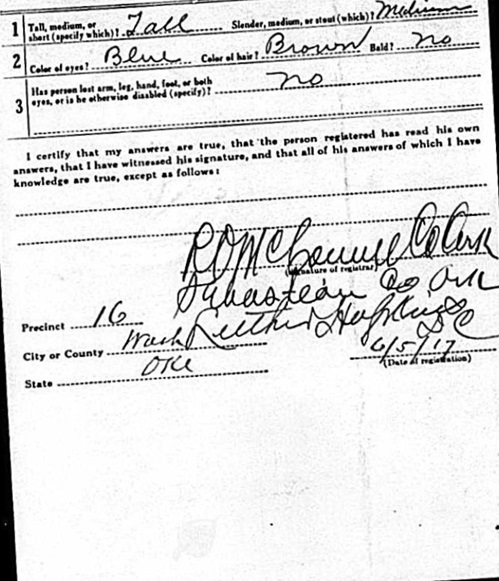 1 Tall, medium, or short (specify which)? Tall Slender, medium, or stout (which)? Medium
2 Color of eyes? Blue Color of hair? Brown Bald? No
3 Has person lost arm, leg, hand, foot, or both eyes, or is he otherwise disabled (specify)? No
I certify that my answers are true, that the person registered has read his own
answers, that I have witnessed his signature, and that all of his answers of which I have
knowledge are true, except as follows:
Co Clerk
(Signature of registrar)
Sebastian Co Ark
Precinct 16
City or County Wash
State Okl
6/5/17
(Date of registration)